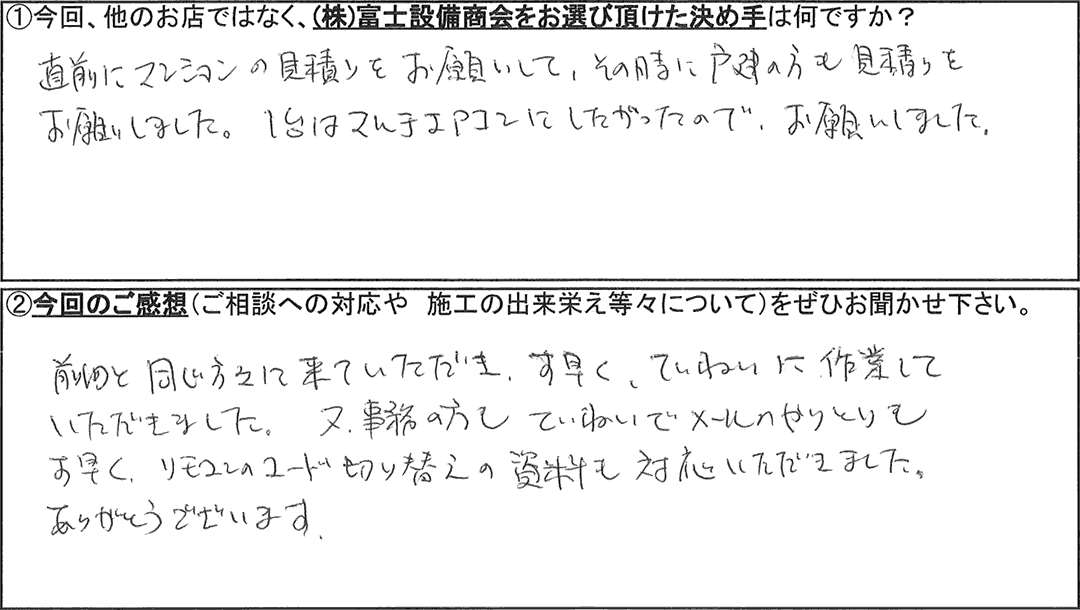 ①今回、他のお店ではなく、(株)富士設備商会をお選び頂けた決め手は何ですか？
直前にマンションの見積りをお願いして、その時に戸建の方も見積りを
お願いしました。1台はマルチエアコンにしたがったので、お願いしました。
②今回のご感想(ご相談への対応や 施工の出来栄え等々について)をぜひお聞かせ下さい。
前回と同じ方々に来ていただき、す早く、ていねいに作業して
いただきました。又、事務の方も ていねいでメールのやりとりも
す早く、リモコンのコード切り替えの資料も対応いただきました。
ありがとうございます。